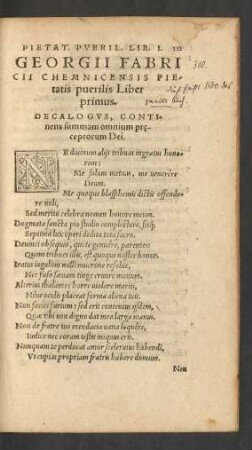 PIETAT. PVERIL. LIB. I.
GEORGII FABRI
CII CHEMNICENSIS PIE-
tatis puerilis Liber
primus.
DECALOGVS, CONTI-
nens summam omnium pręceptorum Dei.
NE divinum alijs tribuas ingratus honorem:
Me solum metuas, me venerere Deum.
Me quoque blasphemis dictis offendere noli,
Sed merito celebra nomen honore meum.
Dogmata sancta pio studio complectere,
Septenus hoc operi dedita tota sacro.
Devinci obsequio, qui te genuere, parentes
Quem tribues illis, est quoque noster honos.
Iratus iugulum nulli mucrone resolve,
Nec fuso sævam tinge cruore manum.
Alterius thalamos horre violare mariti,
Nive oculis placeat forma aliena tuis.
Non sociis furtum: sed erit contentus ijsdem,
Quæ tibi non digno dat mea larga manus.
Non de fratre tuo mendacia vana loquêre,
Iudice me coram testis iniquus eris.
Nunquam te perducat amor sceleratus habendi,
Vt cupias propriam fratris habere domum.
Neu